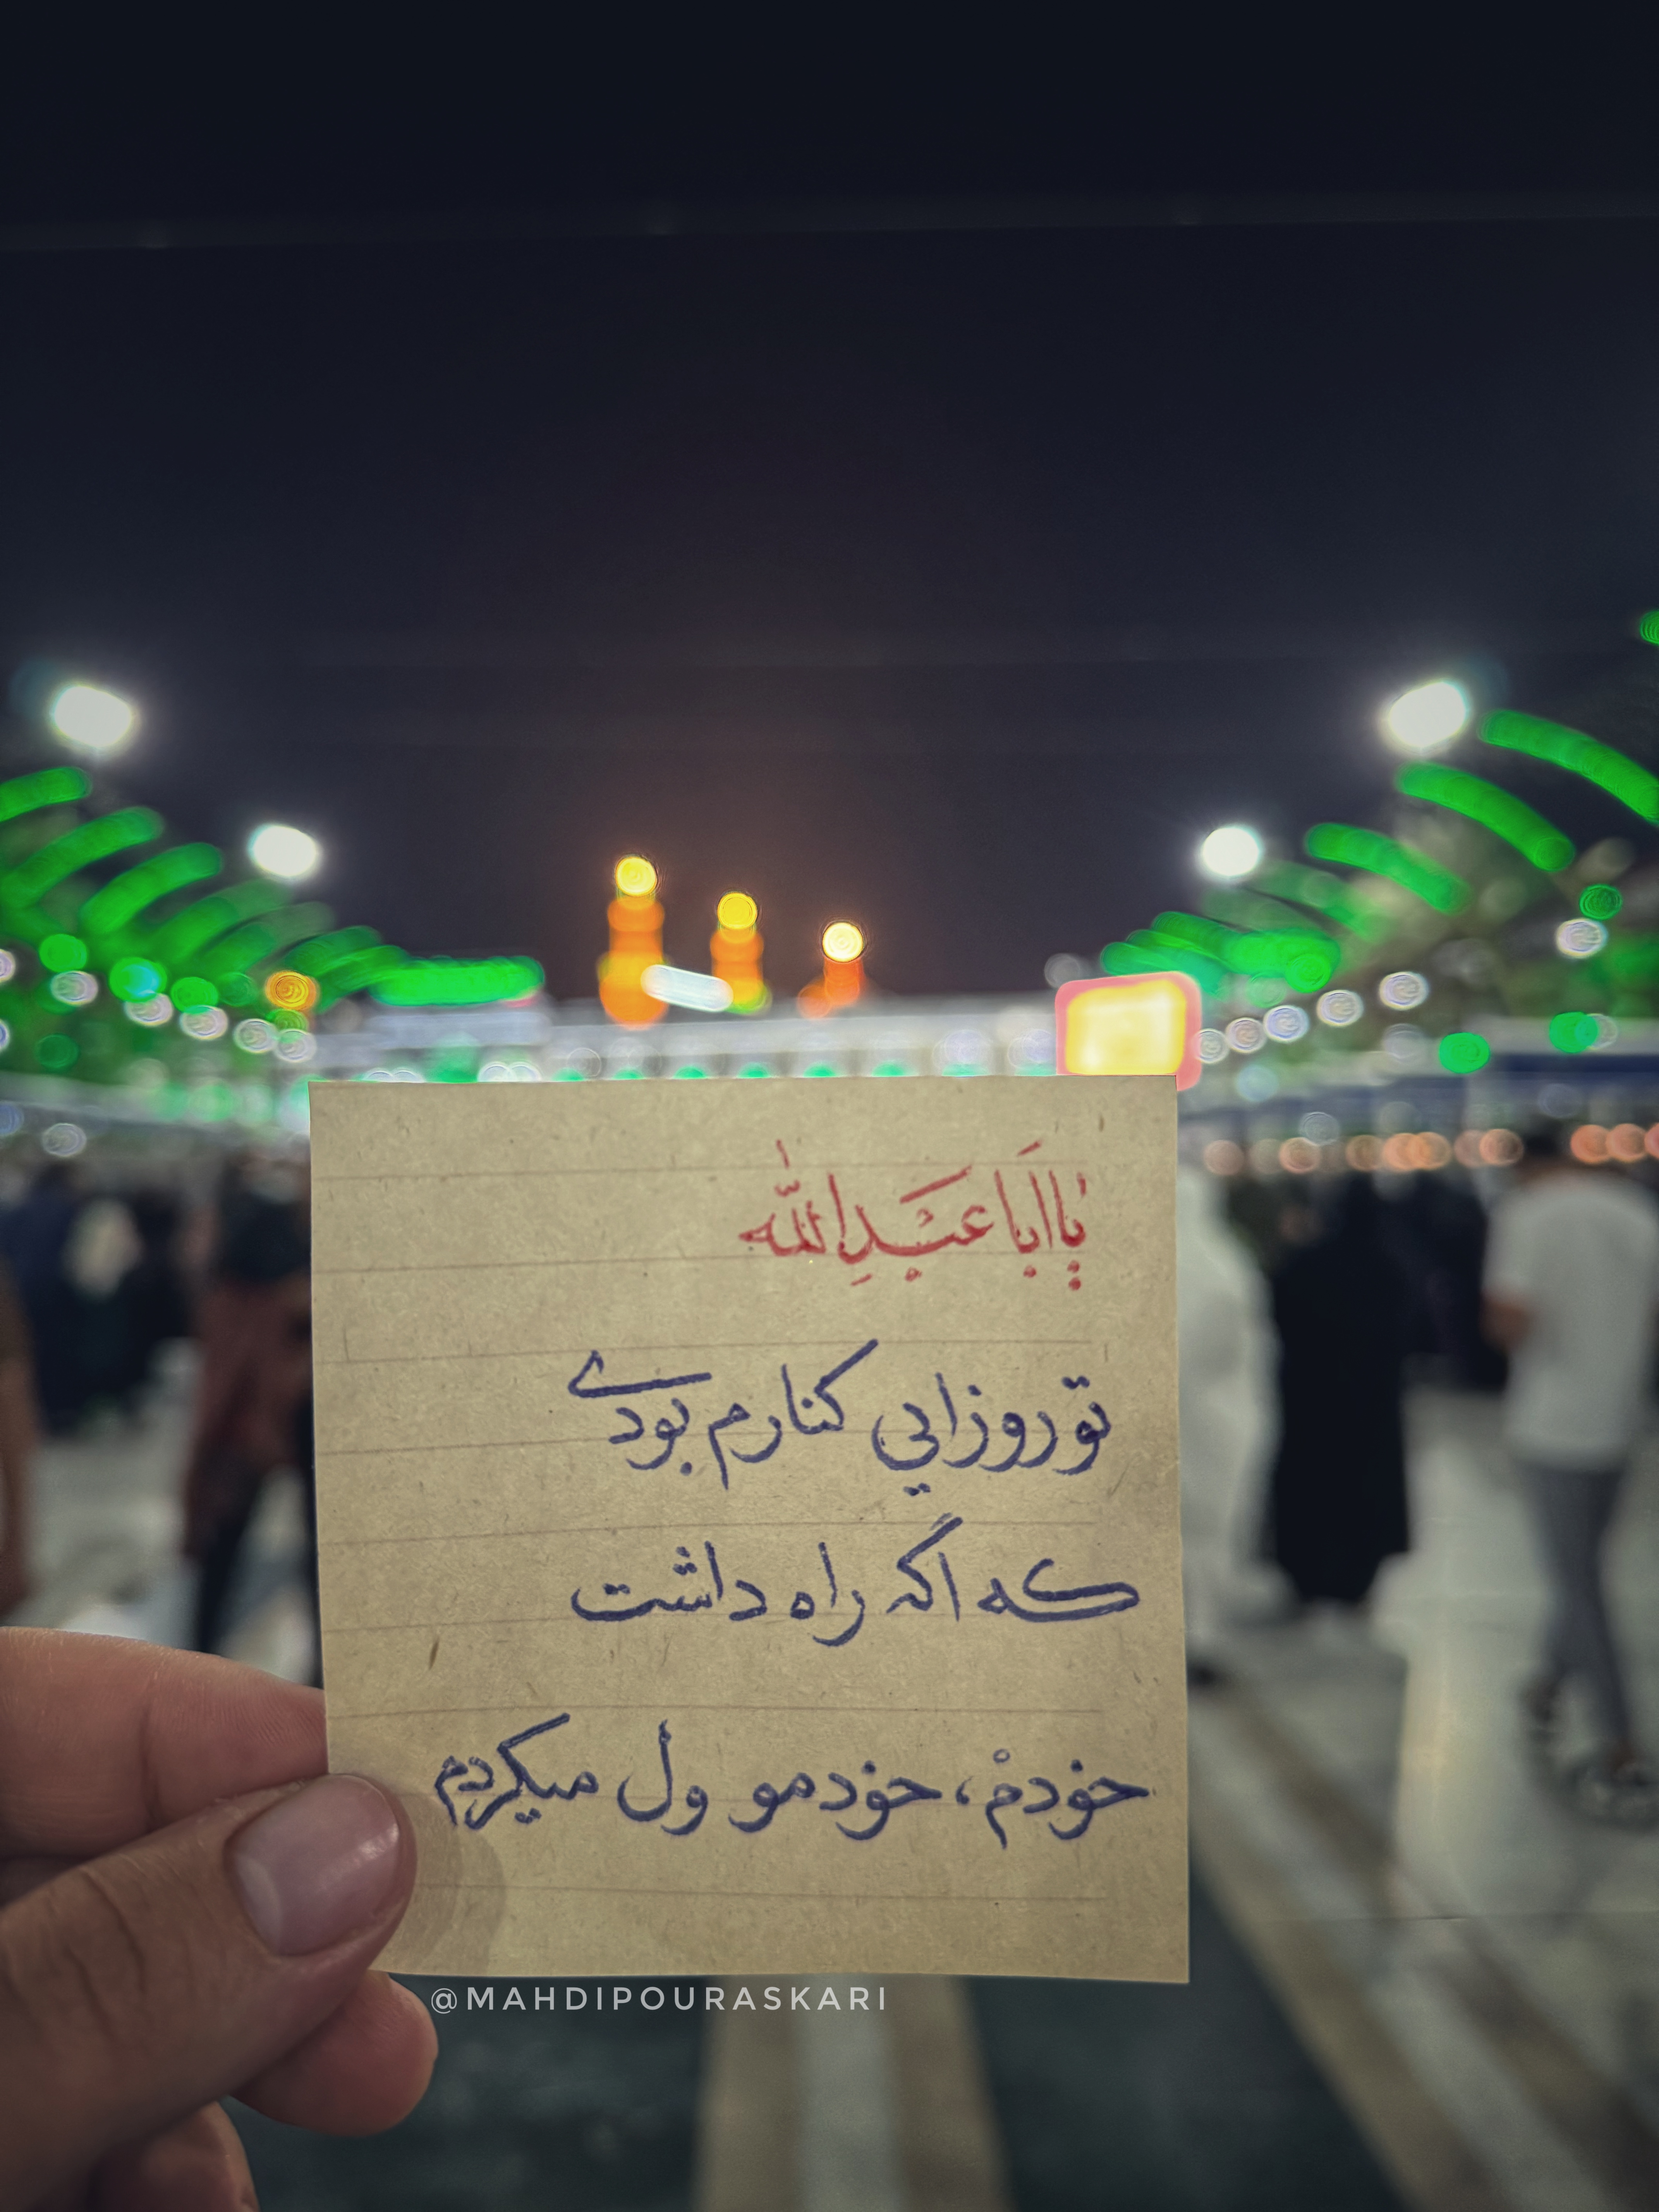 یا اَبا عَبدِالله
تو روزایی کنارم بودی
که اگه راه داشت
خودمْ، خودمو ول میکردم
@MAHDIPOURASKARI